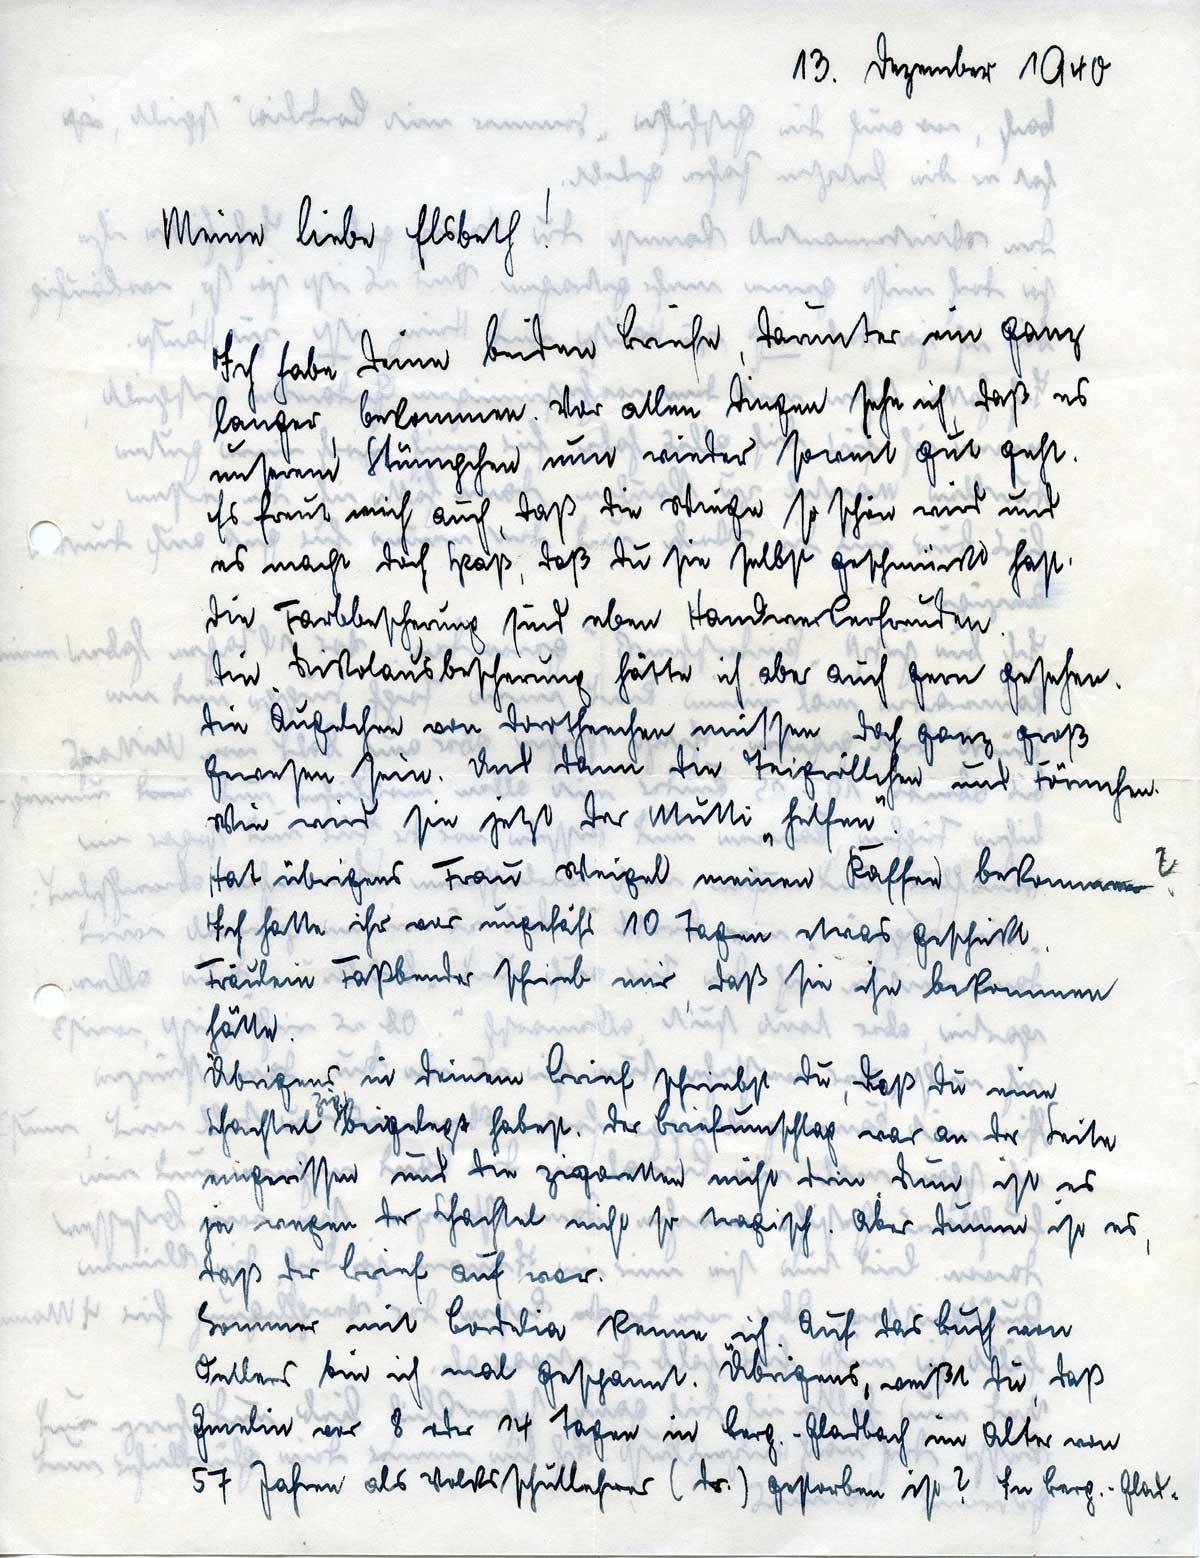 13. Dezember 1940
Meine liebe Elsbeth!
Ich habe Deine beiden Briefe, darunter ein ganz
langer, bekommen. Vor allen Dingen sehe ich, daß es
unserem Stümpchen nun wieder soweit gut geht.
Es freut mich auch, daß die Wiege so schön wird und
es macht doch Spaß, daß Du sie selbst geschmückt hast.
Die Farbbescherung sind eben Handwerkerfreuden.
Die Nikolausbescherung hätte ich aber auch gern gesehen.
Die Äugelchen von Dortheechen müssen doch ganz groß
gewesen sein. Und dann die Teigröllchen und Förmchen.
Wie wird sie jetzt der Mutti „helfen".
Hat übrigens Frau Weigel meinen Kaffee bekommen?
Ich hatte ihr vor ungefähr 10 Tagen etwas geschickt.
Fräulein Faßbender schrieb mir, daß sie ihn bekommen
hätte.
Übrigens in Deinem Brief schriebst Du, daß Du eine
Schachtel Zig. beigelegt habest. Der Briefumschlag war an der Seite
eingerissen und die Zigaretten nicht drin. Nun ist es
ja wegen der Schachtel nicht so tragisch. Aber dumm ist es,
daß der Brief auf war.
Sommer mit Cordelia kenne ich. Auf das Buch von
Oellers bin ich mal gespannt. Übrigens, weißt Du, daß
Gmelin vor 8 oder 14 Tagen in Berg.-Gladbach im Alter von
57 Jahren als Volksschullehrer (Dr.) gestorben ist? In Berg.-Glad-